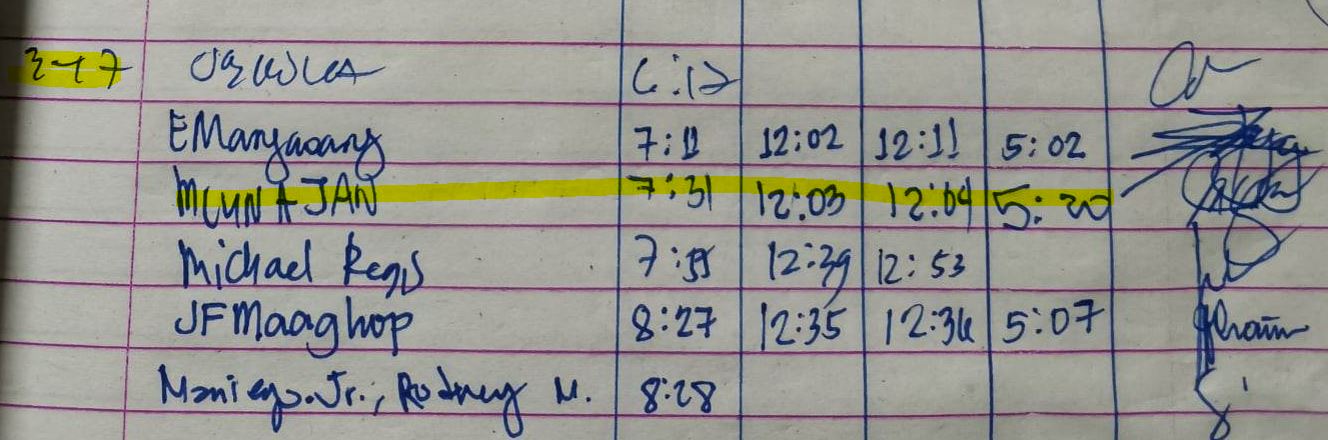 3-17 6:12
EMangaoang 7:11 12:02 12:11 5:02
MLUNA JAN 7:31 12:03 12:04 5:20
Michael Regis 7:55 12:39 12:53
JFMaaghop 8:27 12:35 12:36 5:07
Maniego Jr., Rodney M. 8:28